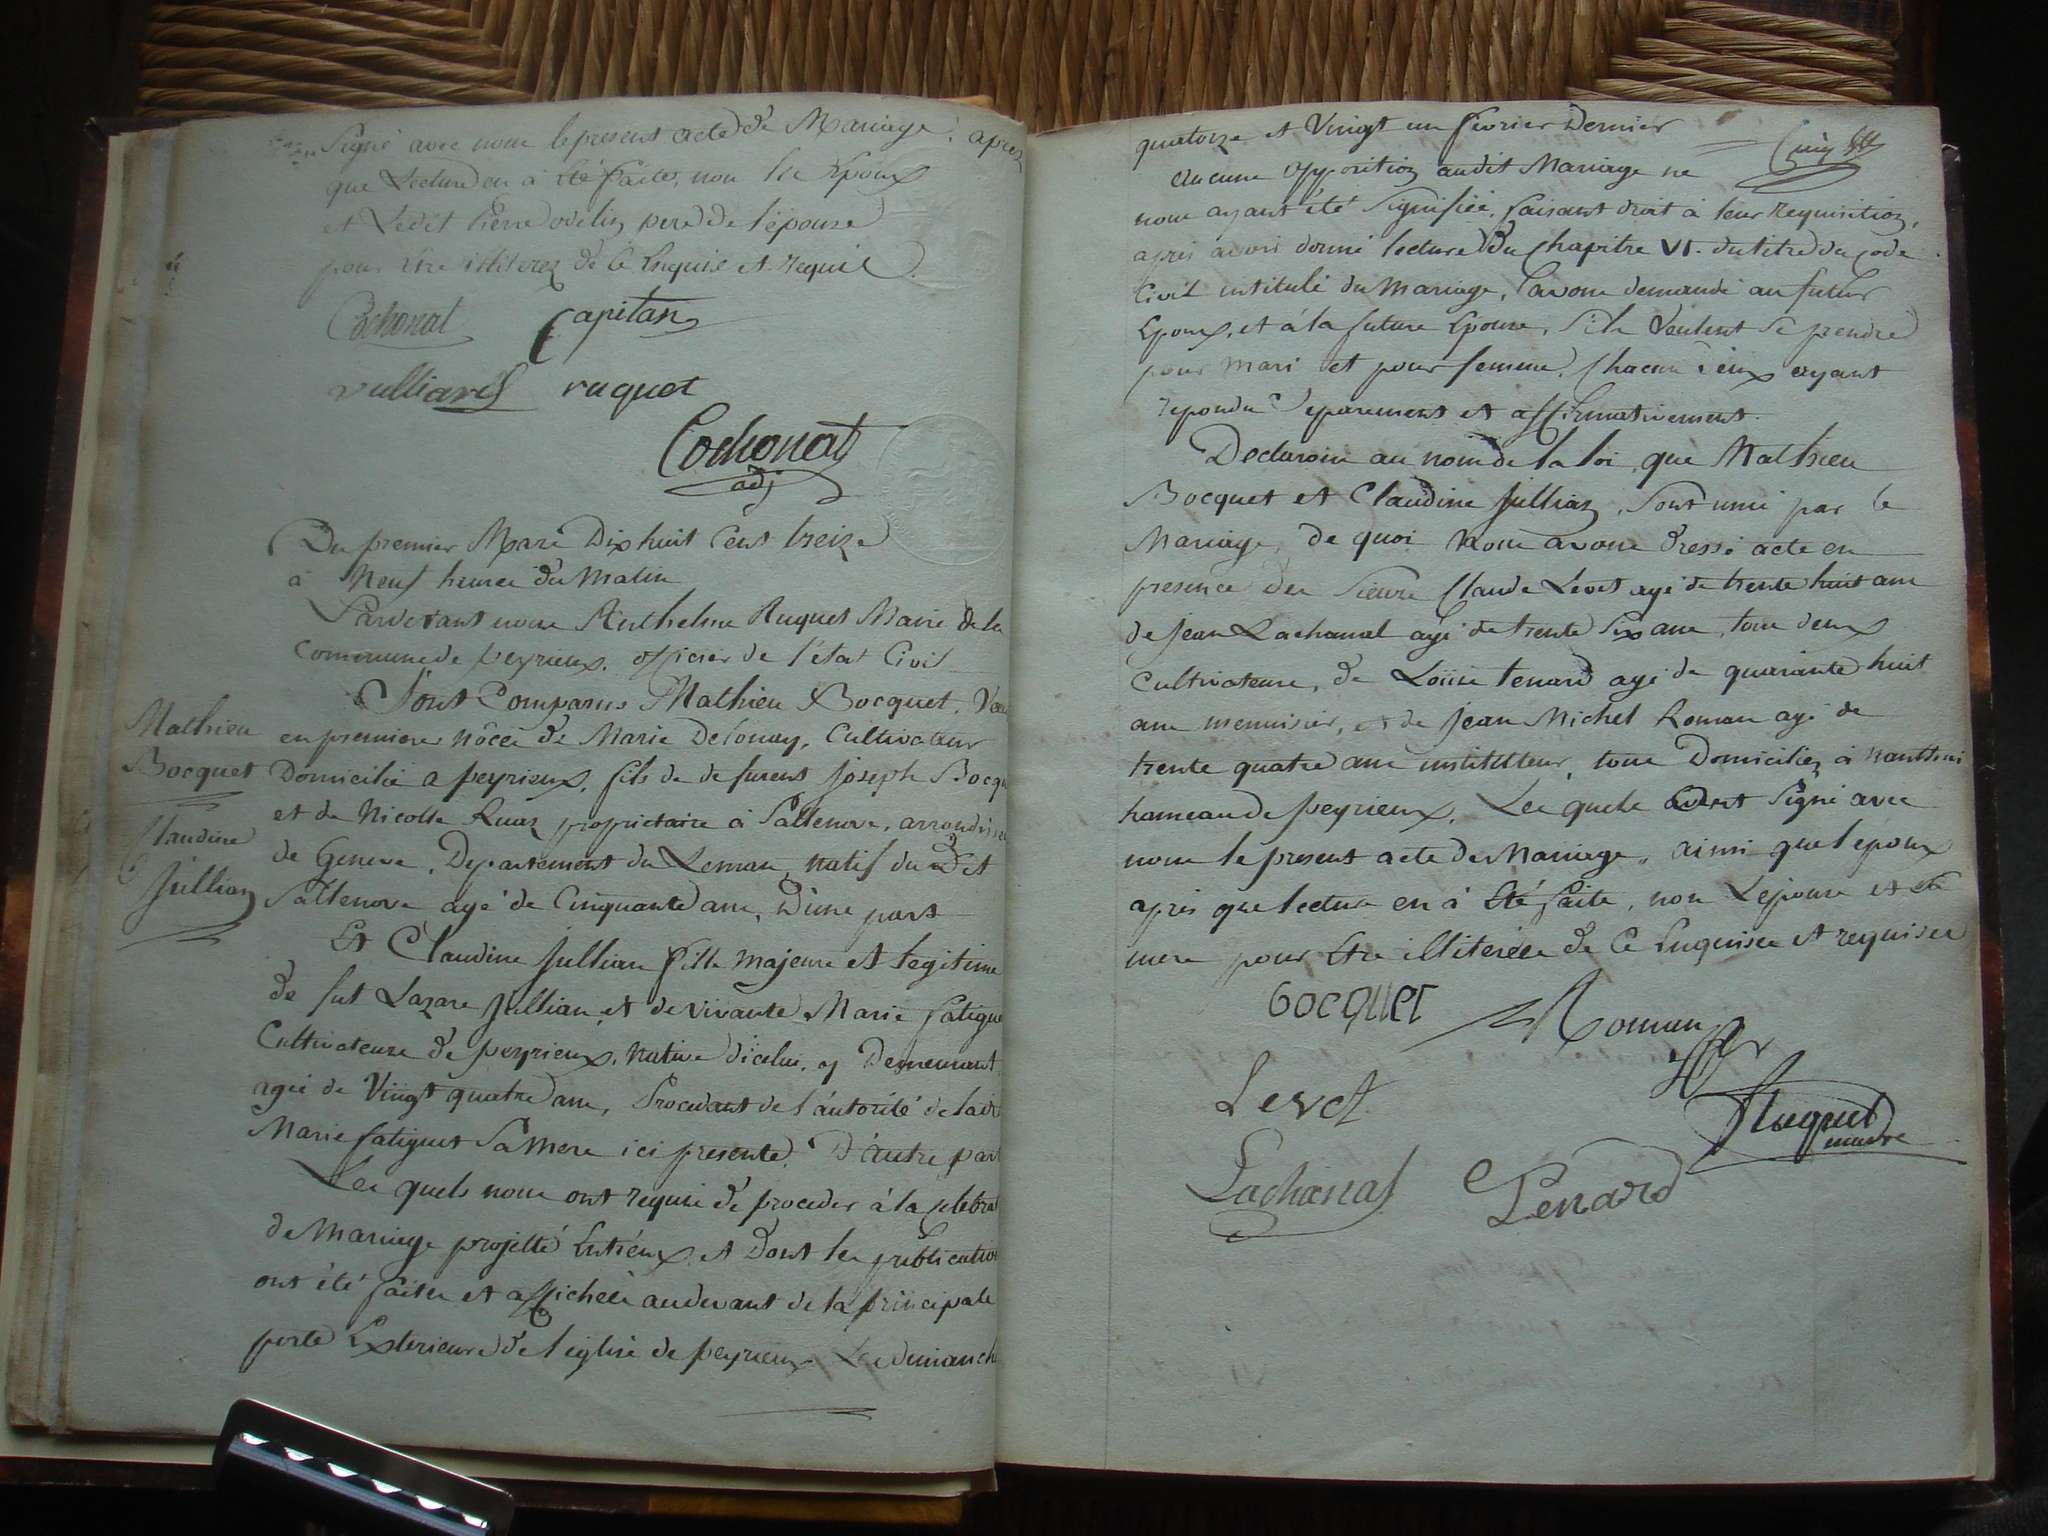 Signé avec nous le present acte de Mariage, aprez
que Lecture en a été faite, non les Epoux
et Ledit Pierre odelin pere de l'epouse
pour être illiterez de ce Enquis et requis.
Cochonat Capitan
vulliard ruquet
Cochonat
adj
Du premier Mars Dix huit Cent treize
à Neuf heures du Matin
Pardevant nous Anthelme Ruquet Maire de la
Commune de peyrieux, officier de l'état Civil
Sont Comparus Mathieu Bocquet, Veu
Mathieu
Bocquet
Claudine
Jullian
en premieres nôces de Marie Delonay, Cultivateur
Domicilié a peyrieux, fils de defunts Joseph Bocqu
et de Nicolle Ruaz proprietaire à Sallenove, arrondisse
de Geneve, Departement du Leman, natif du dit
Sallenove agé de Cinquante ans, D'une part
Et Claudine Jullian fille majeure et legitime
de fut Lazare Jullian, et de vivante Marie fatigue
Cultivateurs de peyrieux, native d'icelui, y Demeurant
agée de Vingt quatre ans, Procedant de l'autorité de ladi
Marie fatiguet Sa Mere ici presente. D'autre part
Les quels nous ont requis de proceder à la celebra
de Mariage projetté Entr'eux, et Dont les publication
ont été faites et affichées audevant de la principale
porte Exterieure de l'eglise de peyrieux. Les dimanche
quatorze et Vingt un fevrier Dernier
Aucune opposition audit Mariage ne
nous ayant été Signifiée, faisant droit à leur requisition,
aprés avoir donné lecture du Chapitre VI. du titre du Code
Civil intitulé du Mariage, avons demandé au futur
Epoux, et à la future Epouse, s'ils Veulent Se prendre
pour mari et pour femme, Chacun d'eux ayant
repondu Separement et affirmativement.
Declarons au nom de la loi, que Mathieu
Bocquet et Claudine Jullian, Sont unis par le
Mariage, de quoi Nous avons dressé acte en
presence des Sieurs Claude Levet agé de trente huit ans
de Jean Lachanal agé de trente Six ans, tous deux
Cultivateurs, de Loüis tenard agé de quarante huit
ans menuisier, et de Jean Michel Roman agé de
trente quatre ans instituteur, tous Domiciliez à
hameau de peyrieux, Les quels ont Signé avec
nous le present acte de Mariage, ainsi que l'époux
aprés que lecture en à Eté faite, non L'epouse et Sa
mere pour Etre illiterées de Ce Enquises et requises
bocquet Roman
Levet
Ruquet
maire
Lachanal Tenard